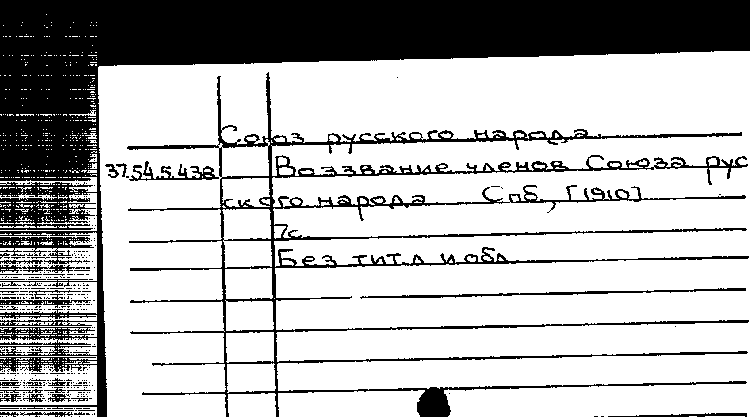 Союз русского народа.
37.54.5.438 Воззвание членов Союза рус
ского народа Спб, [1910]
7с.
Без тит.л и обл.